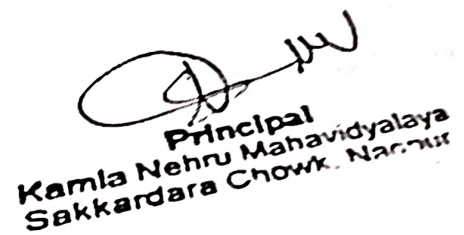 Principal
Kamla Nehru Mahavidyalaya
Sakkardara Chowk,